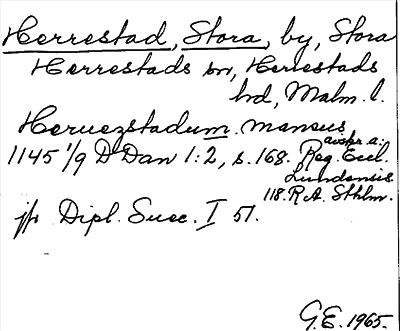 Herrestad, Stora, by, Stora
Herrestads sn, Herrestads
hd, Malm. l.
Heruezstadum. mansus
1145 1/9 D Dan 1:2, s. 168. avskr. a:
Reg. Eccl.
Lundensis
118. R.A. Sthlm.
jfr Dipl. Suec. I 57.
G.E. 1965.